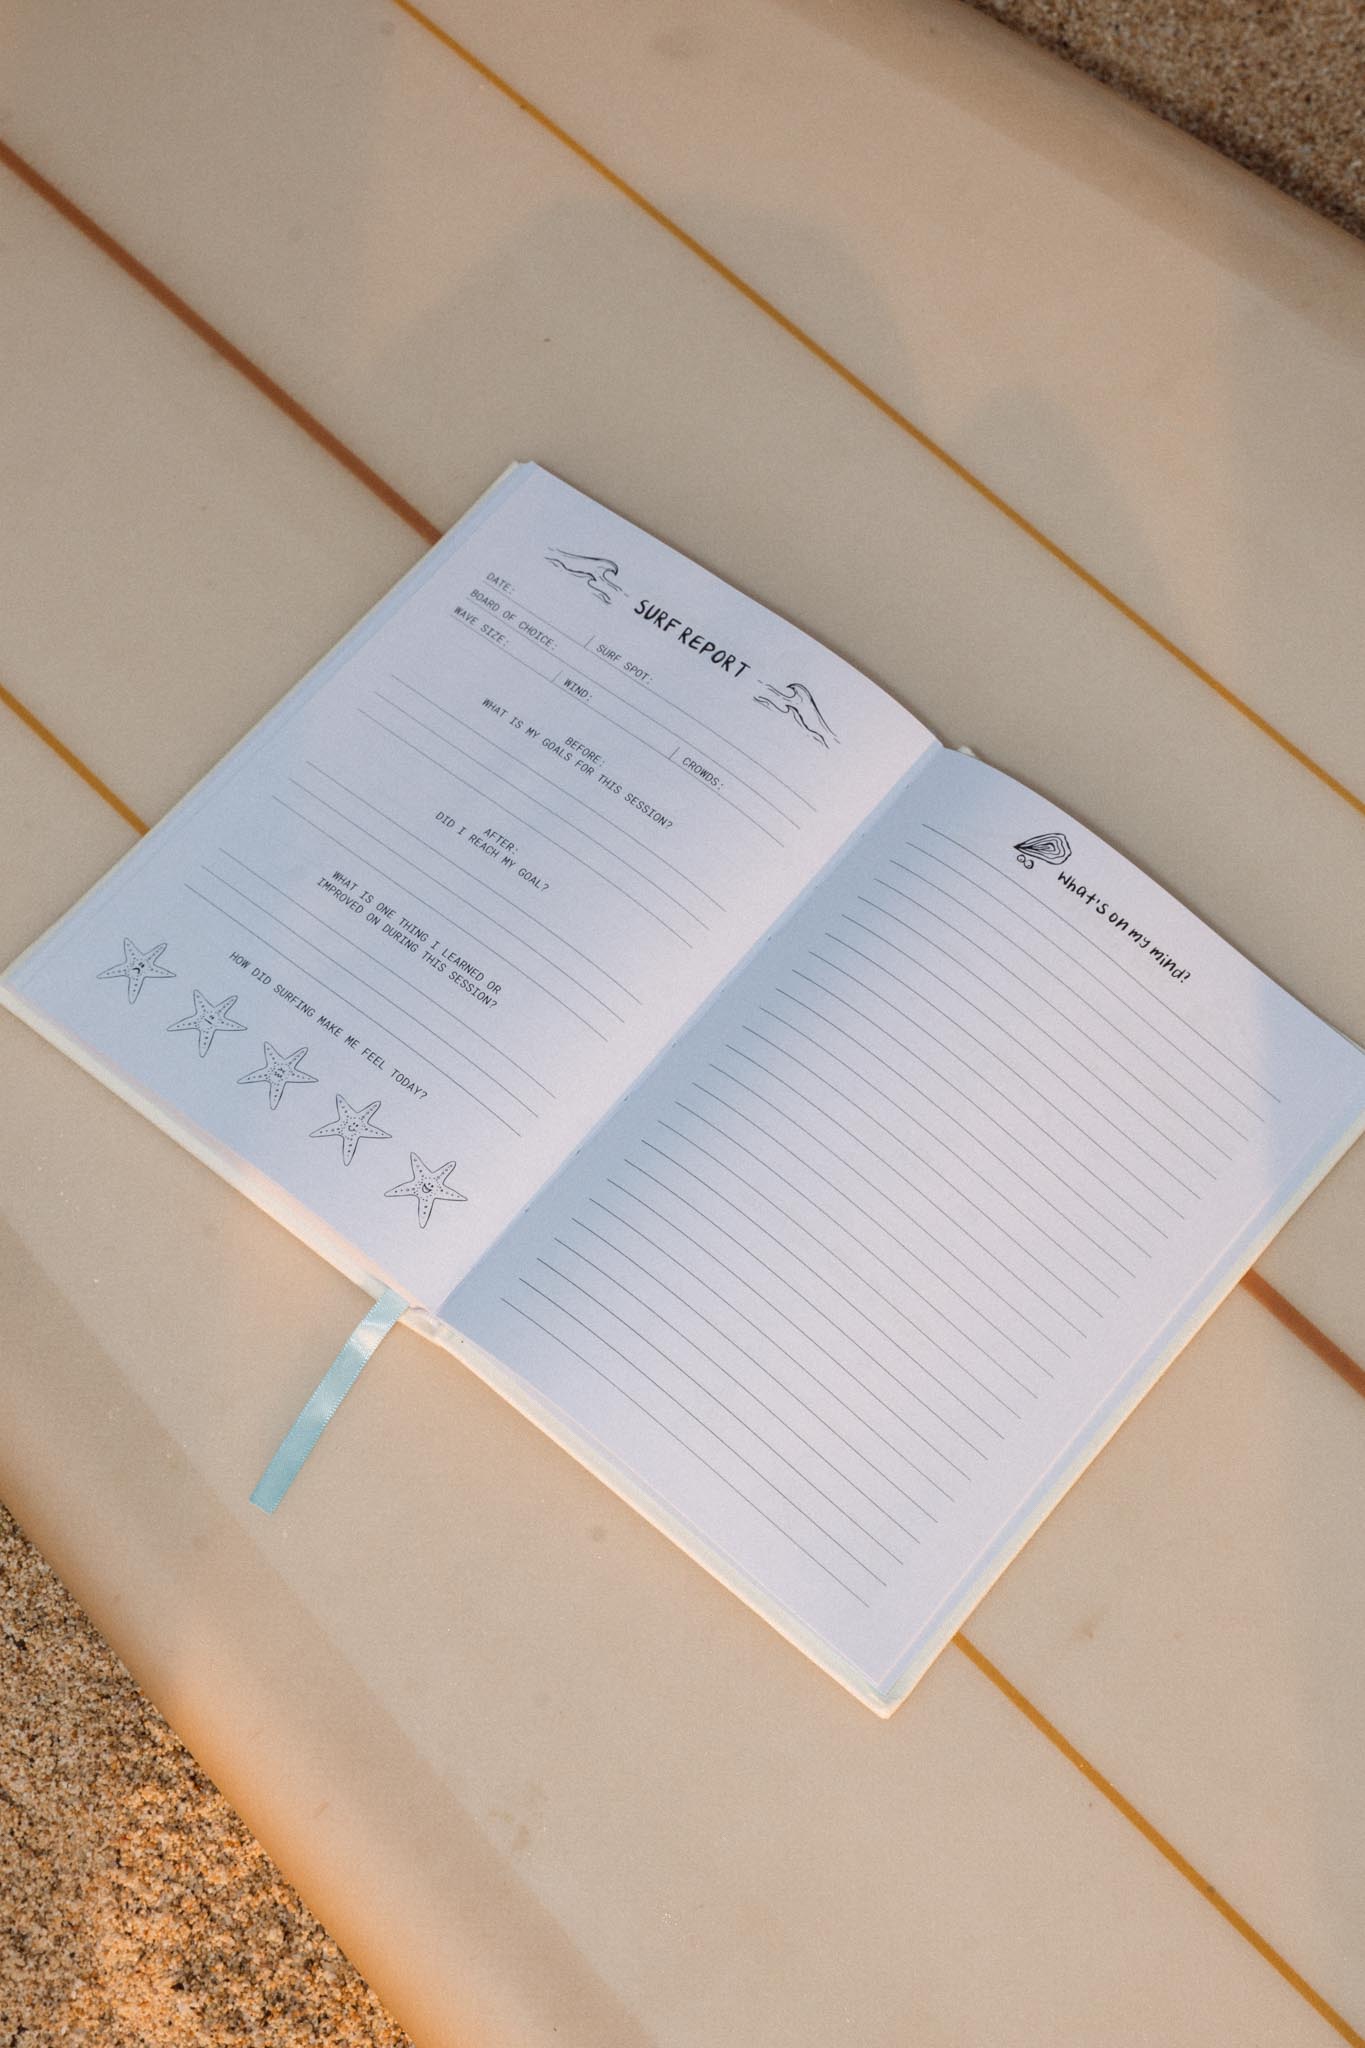 SURF REPORT
DATE: | SURF SPOT:
BOARD OF CHOICE:
WAVE SIZE: | WIND: | CROWDS:
BEFORE:
WHAT IS MY GOALS FOR THIS SESSION?
AFTER:
DID I REACH MY GOAL?
WHAT IS ONE THING I LEARNED OR
IMPROVED ON DURING THIS SESSION?
HOW DID SURFING MAKE ME FEEL TODAY?
What's on my mind?